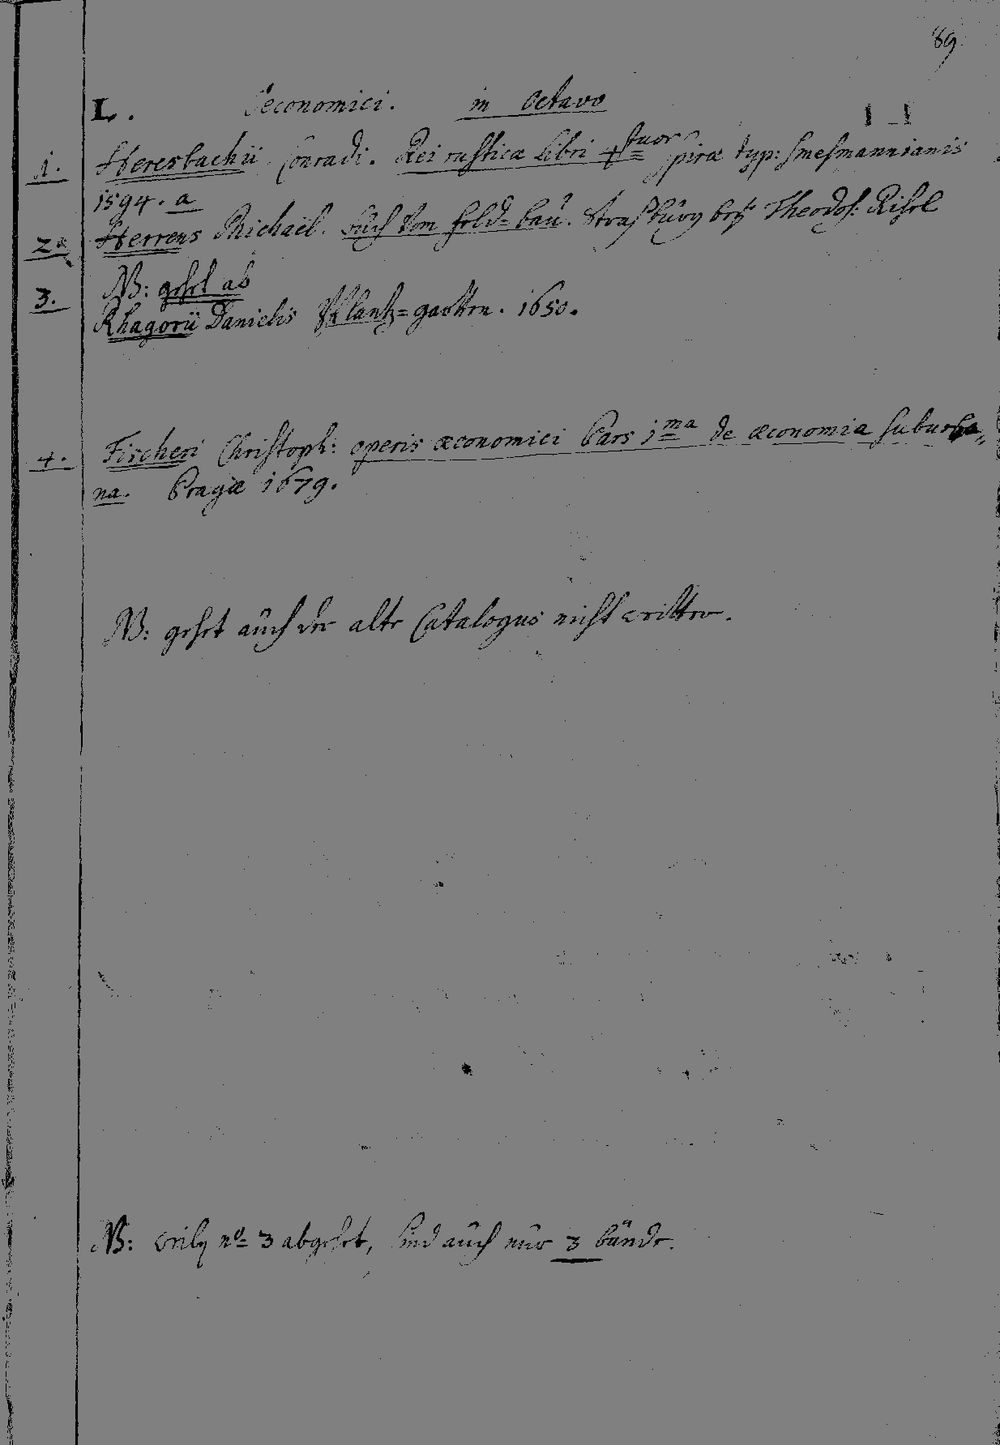 89
L. Oeconomici. in Octavo
1. Heresbachii Conradi. Rei rusticæ Libri 4tuor Spiræ typ: Smesmannianis
1594. a
2. Herrens Michaël. buch vom feld=bau. Straßburg beÿ Theodos: Rihel
NB: gehet ab
3. Rhagorii Danielis Pflantz=garten. 1650.
4. Fischeri Christoph: operis œconomici Pars 1ma de œconomia suburba„
na. Pragæ 1679.
NB: gehet auch der alte Catalogus nicht weitter.
NB: weilen no 3 abgehet, sind auch nur 3 bände.